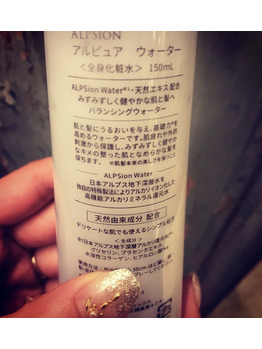 ALPSION
アルピュア ウォーター
＜全身化粧水＞ 150mL
ALPSion Water※1・天然エキス配合
みずみずしく健やかな肌と髪へ
バランシングウォーター
肌と髪にうるおいを与え、基礎力※を
高めるウォーターです。肌疲れや外的
刺激から保護し、みずみずしく健やか
なキメの整った肌となめらかな髪を
保ちます。 ※肌髪本来の美しさを保つこと
ALPSion Water
日本アルプス地下深層水を
独自の特殊製法によりアルカリイオン化した
高機能アルカリミネラル還元水
天然由来成分 配合
デリケートな肌でも使えるシンプル処方
＜全成分＞
水(日本アルプス地下深層アルカリ還元水)、
グリセリン、プラセンタエキス、
水溶性コラーゲン、ヒアルロン酸